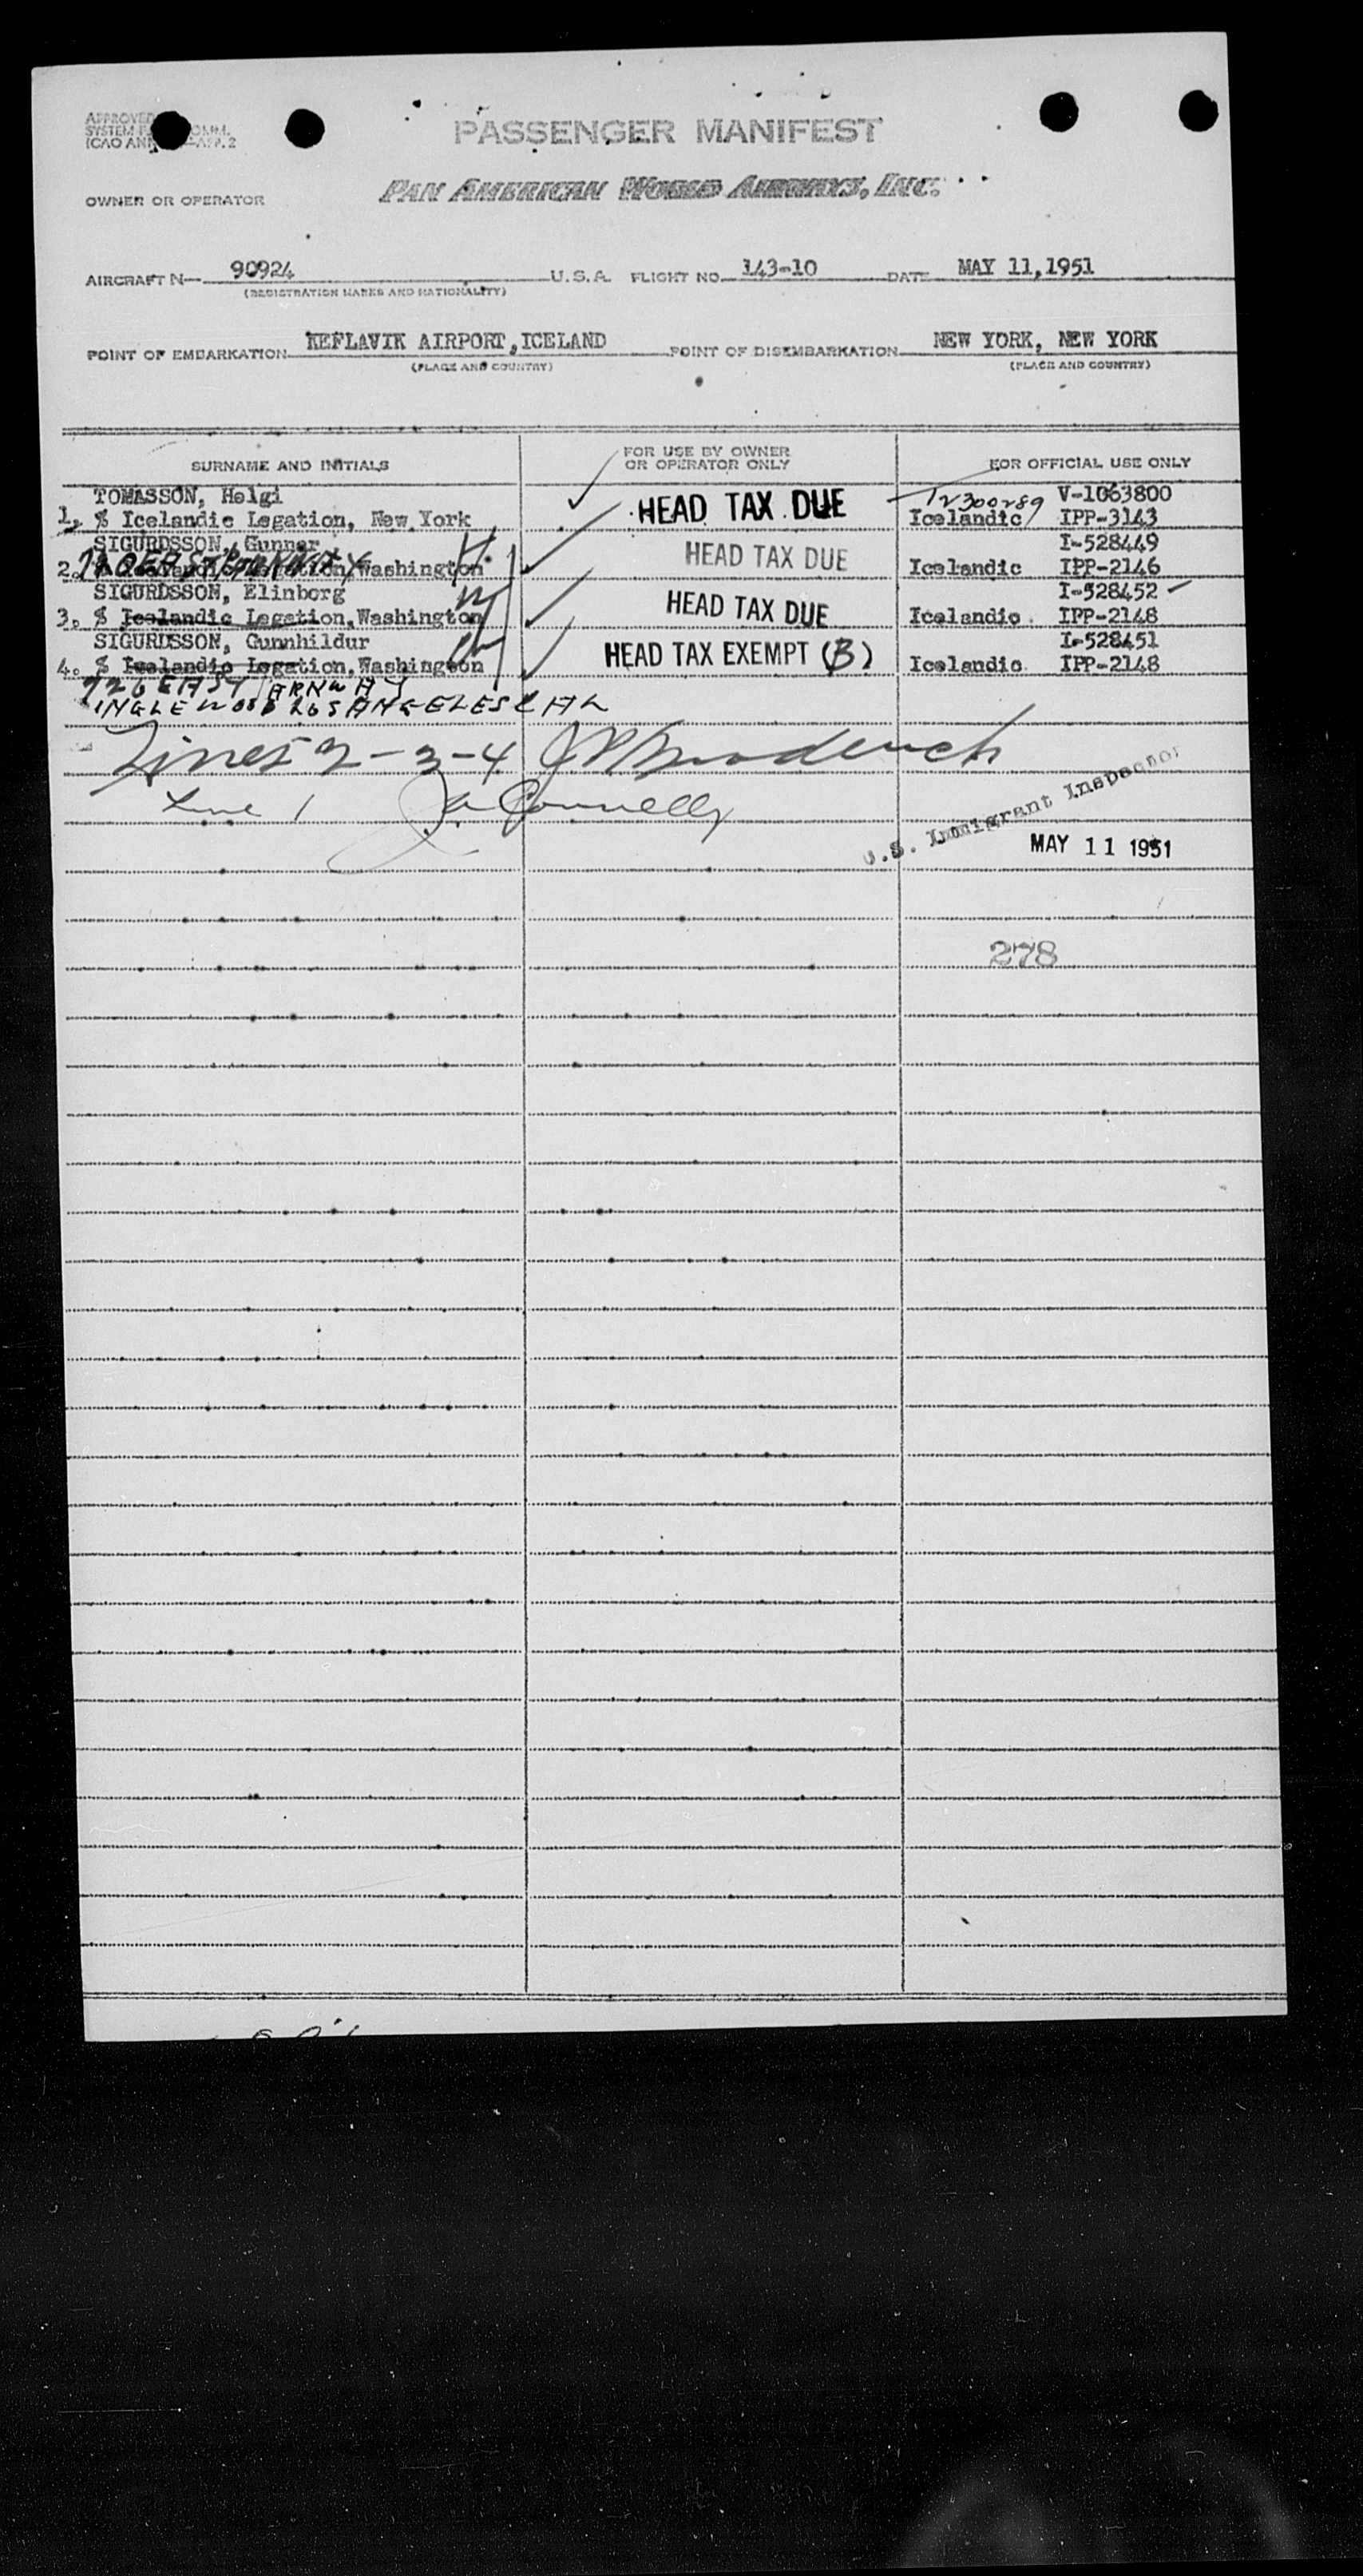 APPROVED
SYSTEM COMM.
ICAO ANN APP. 2
PASSENGER MANIFEST
OWNER OR OPERATOR PAN AMERICAN WORLD AIRWAYS, INC.
AIRCRAFT N— 90924 U.S.A. FLIGHT NO. 143-10 DATE MAY 11,1951
(REGISTRATION MARKS AND NATIONALITY)
POINT OF EMBARKATION KEFLAVIK AIRPORT,ICELAND POINT OF DISEMBARKATION NEW YORK, NEW YORK
(PLACE AND COUNTRY) (PLACE AND COUNTRY)
SURNAME AND INITIALS FOR USE BY OWNER OR OPERATOR ONLY FOR OFFICIAL USE ONLY
TOMASSON, Helgi HEAD TAX DUE V-1063800
1. % Icelandic Legation, New York Icelandic IPP-3143
SIGURDSSON, Gunnar HEAD TAX DUE I-528449
2. % Washington Icelandic IPP-2146
SIGURDSSON, Elinborg HEAD TAX DUE I-528452
3. % Icelandic Legation,Washington Icelandic IPP-2148
SIGURDSSON, Gunnhildur HEAD TAX EXEMPT (B) I-528451
4. % Icelandic Legation,Washington Icelandic IPP-2148
726 EAST
INGLEWOOD LOS ANGELES CAL
Lines 2-3-4
Line 1 Connelly
U.S. Immigrant Inspector
MAY 11 1951
278